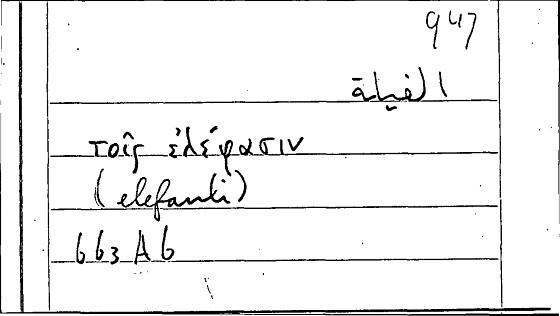 947
الفيلة
τοῖς ἐλέφασιν
(elefanti)
663 A6